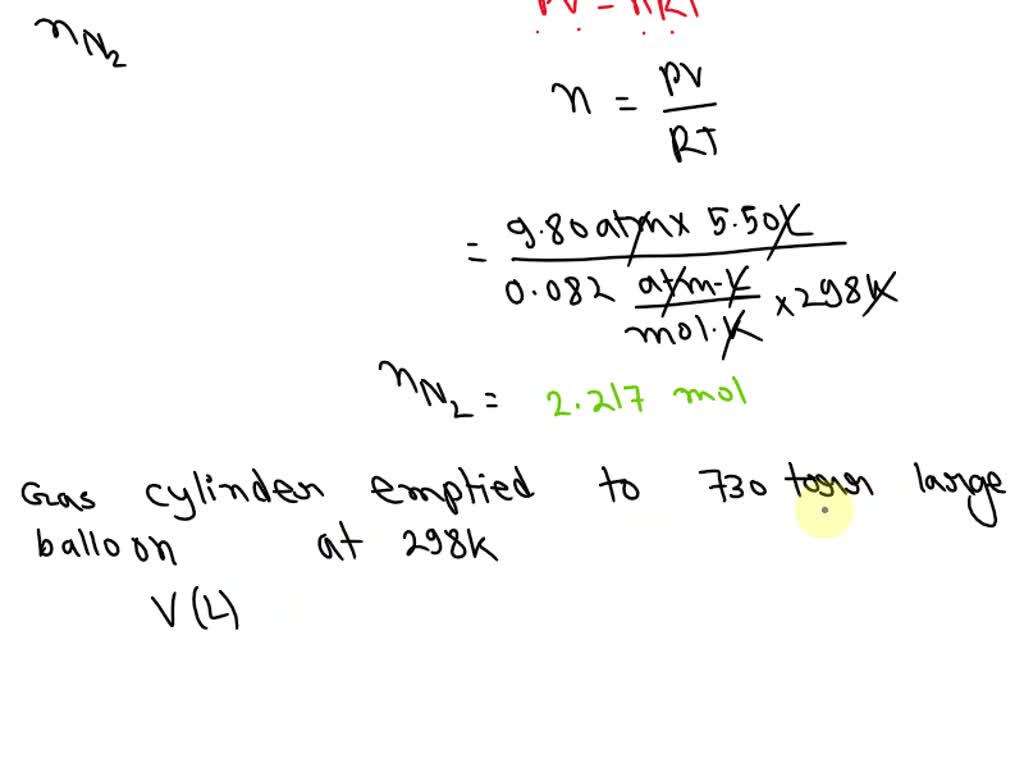 PV = nRT
nN2
n = PV / RT
= 9.80 atm x 5.50 L / 0.082 atm-L / mol.K x 298K
nN2 = 2.217 mol
Gas cylinder emptied to 730 torr large
balloon at 298K
V (L)